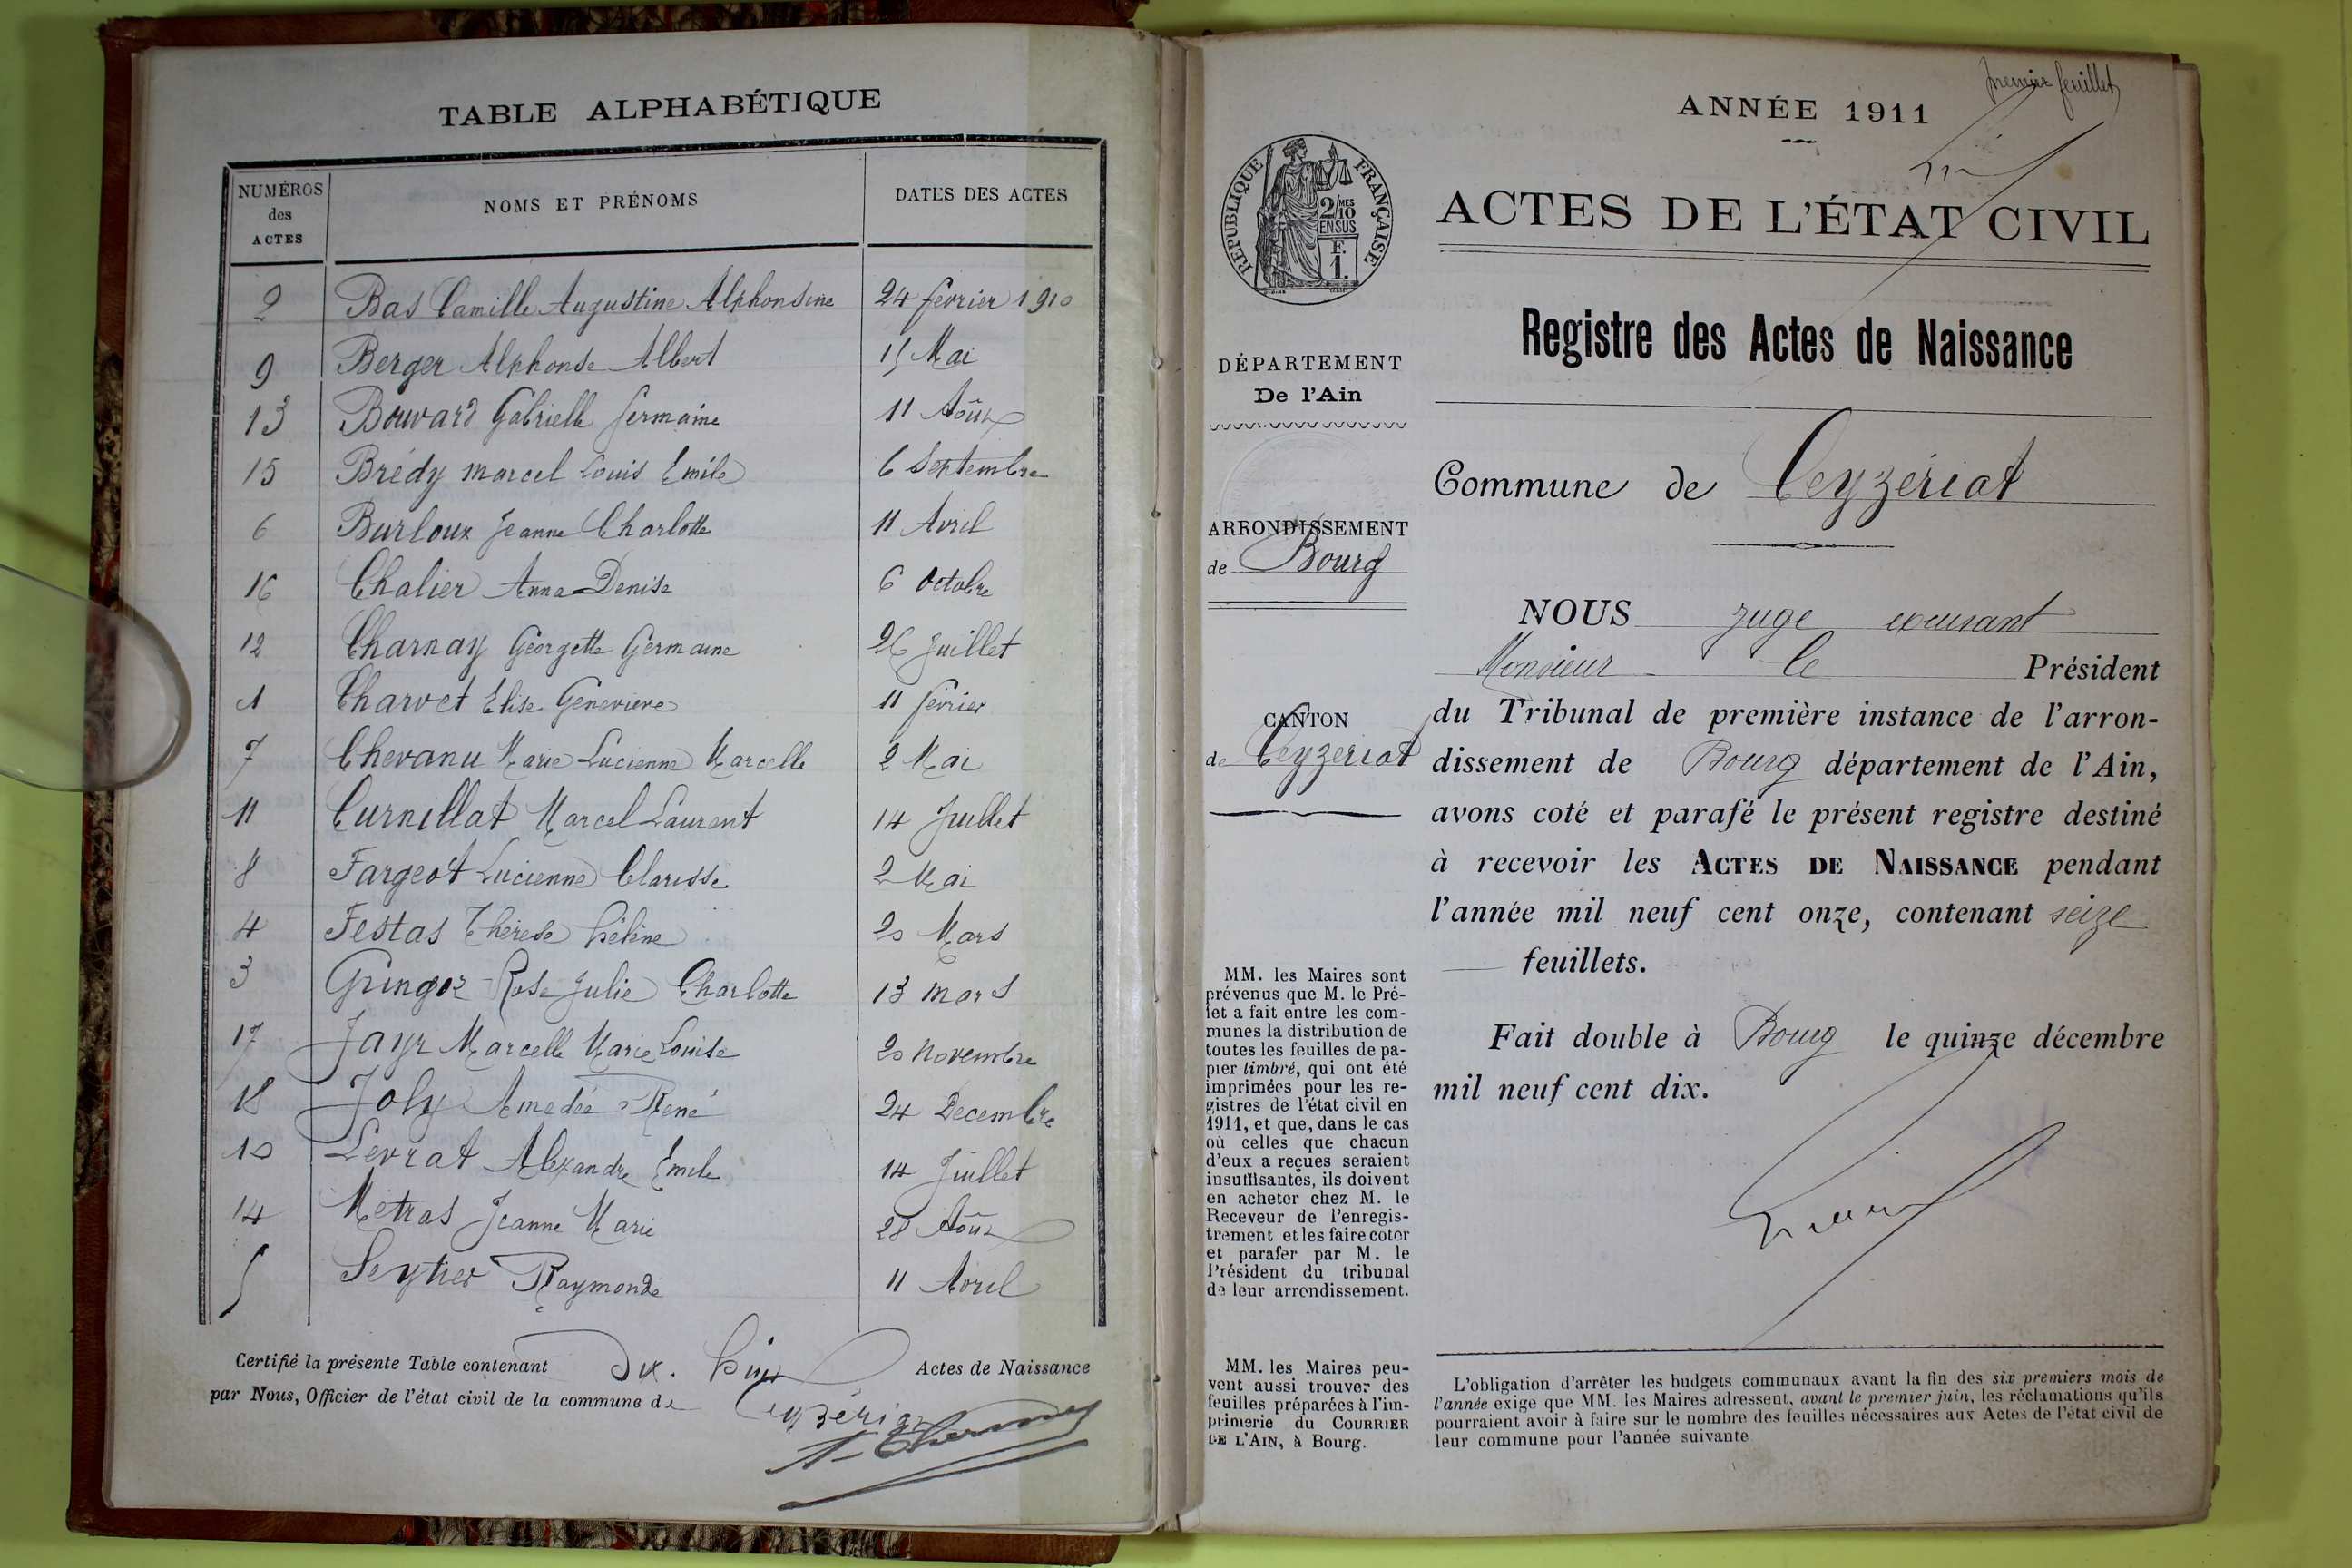 TABLE ALPHABÉTIQUE
NUMÉROS
des
ACTES
NOMS ET PRÉNOMS
DATES DES ACTES
2 Bas Camille Augustine Alphonsine 24 février 1910
9 Berger Alphonse Albert 15 Mai
13 Bouvard Gabrielle Germaine 11 Août
15 Brédy Marcel Louis Emile 6 Septembre
6 Burloux Jeanne Charlotte 11 Avril
16 Chalier Anna Denise 6 Octobre
12 Charnay Georgette Germaine 26 Juillet
1 Charvet Elise Genevieve 11 février
7 Chevanu Marie Lucienne Marcelle 2 Mai
11 Curnillat Marcel Laurent 14 Juillet
8 Fargeot Lucienne Clarisse 2 Mai
4 Festas Thérèse hélène 20 Mars
3 Gringoz Rose Julie Charlotte 13 mars
17 Jayr Marcelle Marie Louise 20 novembre
18 Joly Amedée René 24 Decembre
10 Levrat Alexandre Emile 14 Juillet
14 Métras Jeanne Marie 28 Août
5 Seytier Raymonde 11 Avril
Certifié la présente Table contenant Dix huit Actes de Naissance
par Nous, Officier de l'état civil de la commune de Ceyzériat
premier feuillet
ANNÉE 1911
RÉPUBLIQUE FRANÇAISE
2/10 MES
EN SUS
F.
1.
ACTES DE L'ÉTAT CIVIL
Registre des Actes de Naissance
DÉPARTEMENT
De l'Ain
Commune de Ceyzériat
ARRONDISSEMENT
de Bourg
CANTON
de Ceyzériat
NOUS juge excusant
Monsieur le Président
du Tribunal de première instance de l'arron-
dissement de Bourg département de l'Ain,
avons coté et parafé le présent registre destiné
à recevoir les ACTES DE NAISSANCE pendant
l'année mil neuf cent onze, contenant seize
feuillets.
Fait double à Bourg le quinze décembre
mil neuf cent dix.
MM. les Maires sont
prévenus que M. le Pré-
fet a fait entre les com-
munes la distribution de
toutes les feuilles de pa-
pier timbré, qui ont été
imprimées pour les re-
gistres de l'état civil en
1911, et que, dans le cas
où celles que chacun
d'eux a reçues seraient
insuffisantes, ils doivent
en acheter chez M. le
Receveur de l'enregis-
trement et les faire coter
et parafer par M. le
Président du tribunal
de leur arrondissement.
MM. les Maires peu-
vent aussi trouver des
feuilles préparées à l'im-
primerie du COURRIER
DE L'AIN, à Bourg.
L'obligation d'arrêter les budgets communaux avant la fin des six premiers mois de
l'année exige que MM. les Maires adressent, avant le premier juin, les réclamations qu'ils
pourraient avoir à faire sur le nombre des feuilles nécessaires aux Actes de l'état civil de
leur commune pour l'année suivante